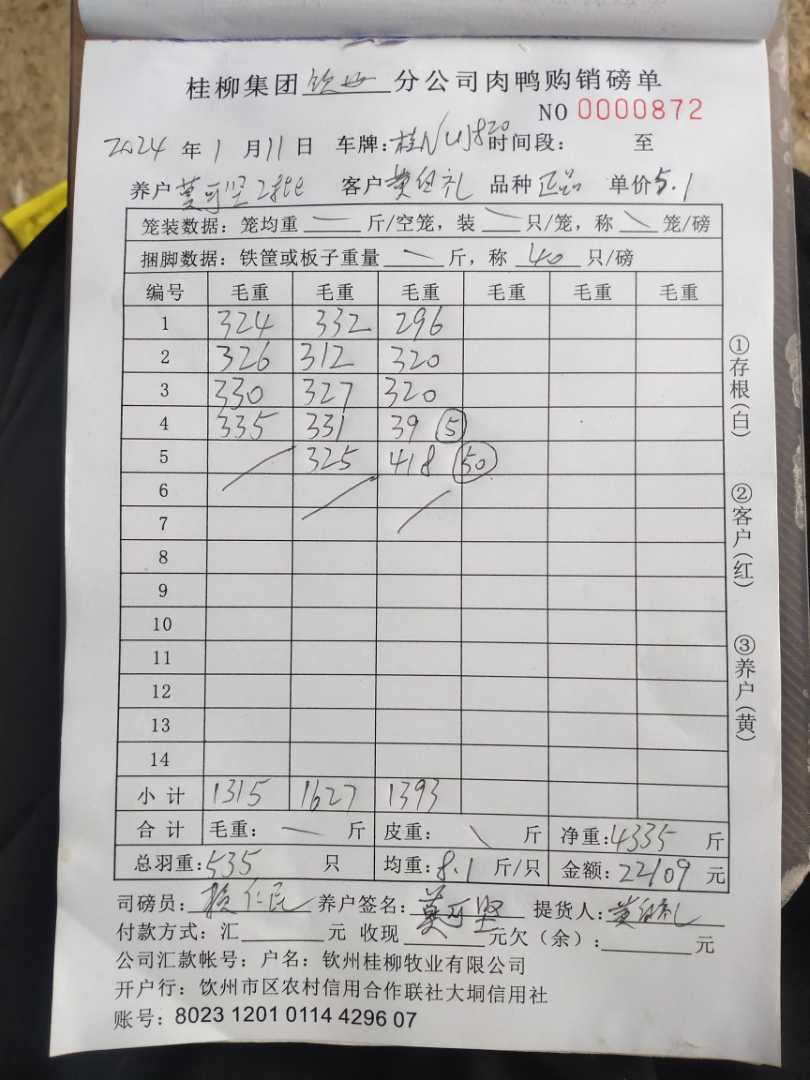 桂柳集团钦州分公司肉鸭购销磅单
NO 0000872
2024 年 1 月 11 日 车牌:桂N 820 时间段: 至
养户 莫可坚 客户 黄 礼 品种 正品 单价 5.1
笼装数据: 笼均重 — 斤/空笼, 装 \ 只/笼, 称 \ 笼/磅
捆脚数据: 铁筐或板子重量 \ 斤, 称 40 只/磅
编号 毛重 毛重 毛重 毛重 毛重 毛重
1 324 332 296
2 326 312 320
3 330 327 320
4 335 331 39 ⑤
5 / 325 418 ㊿
6 /
7 /
8
9
10
11
12
13
14
小计 1315 1627 1393
合计 毛重: — 斤 皮重: \ 斤 净重: 4335 斤
总羽重: 535 只 均重: 8.1 斤/只 金额: 22109 元
司磅员: 仁民 养户签名: 莫可坚 提货人: 黄 礼
付款方式: 汇 元 收现 元欠(余): 元
公司汇款帐号: 户名: 钦州桂柳牧业有限公司
开户行: 饮州市区农村信用合作联社大垌信用社
账号: 8023 1201 0114 4296 07
①存根(白)
②客户(红)
③养户(黄)